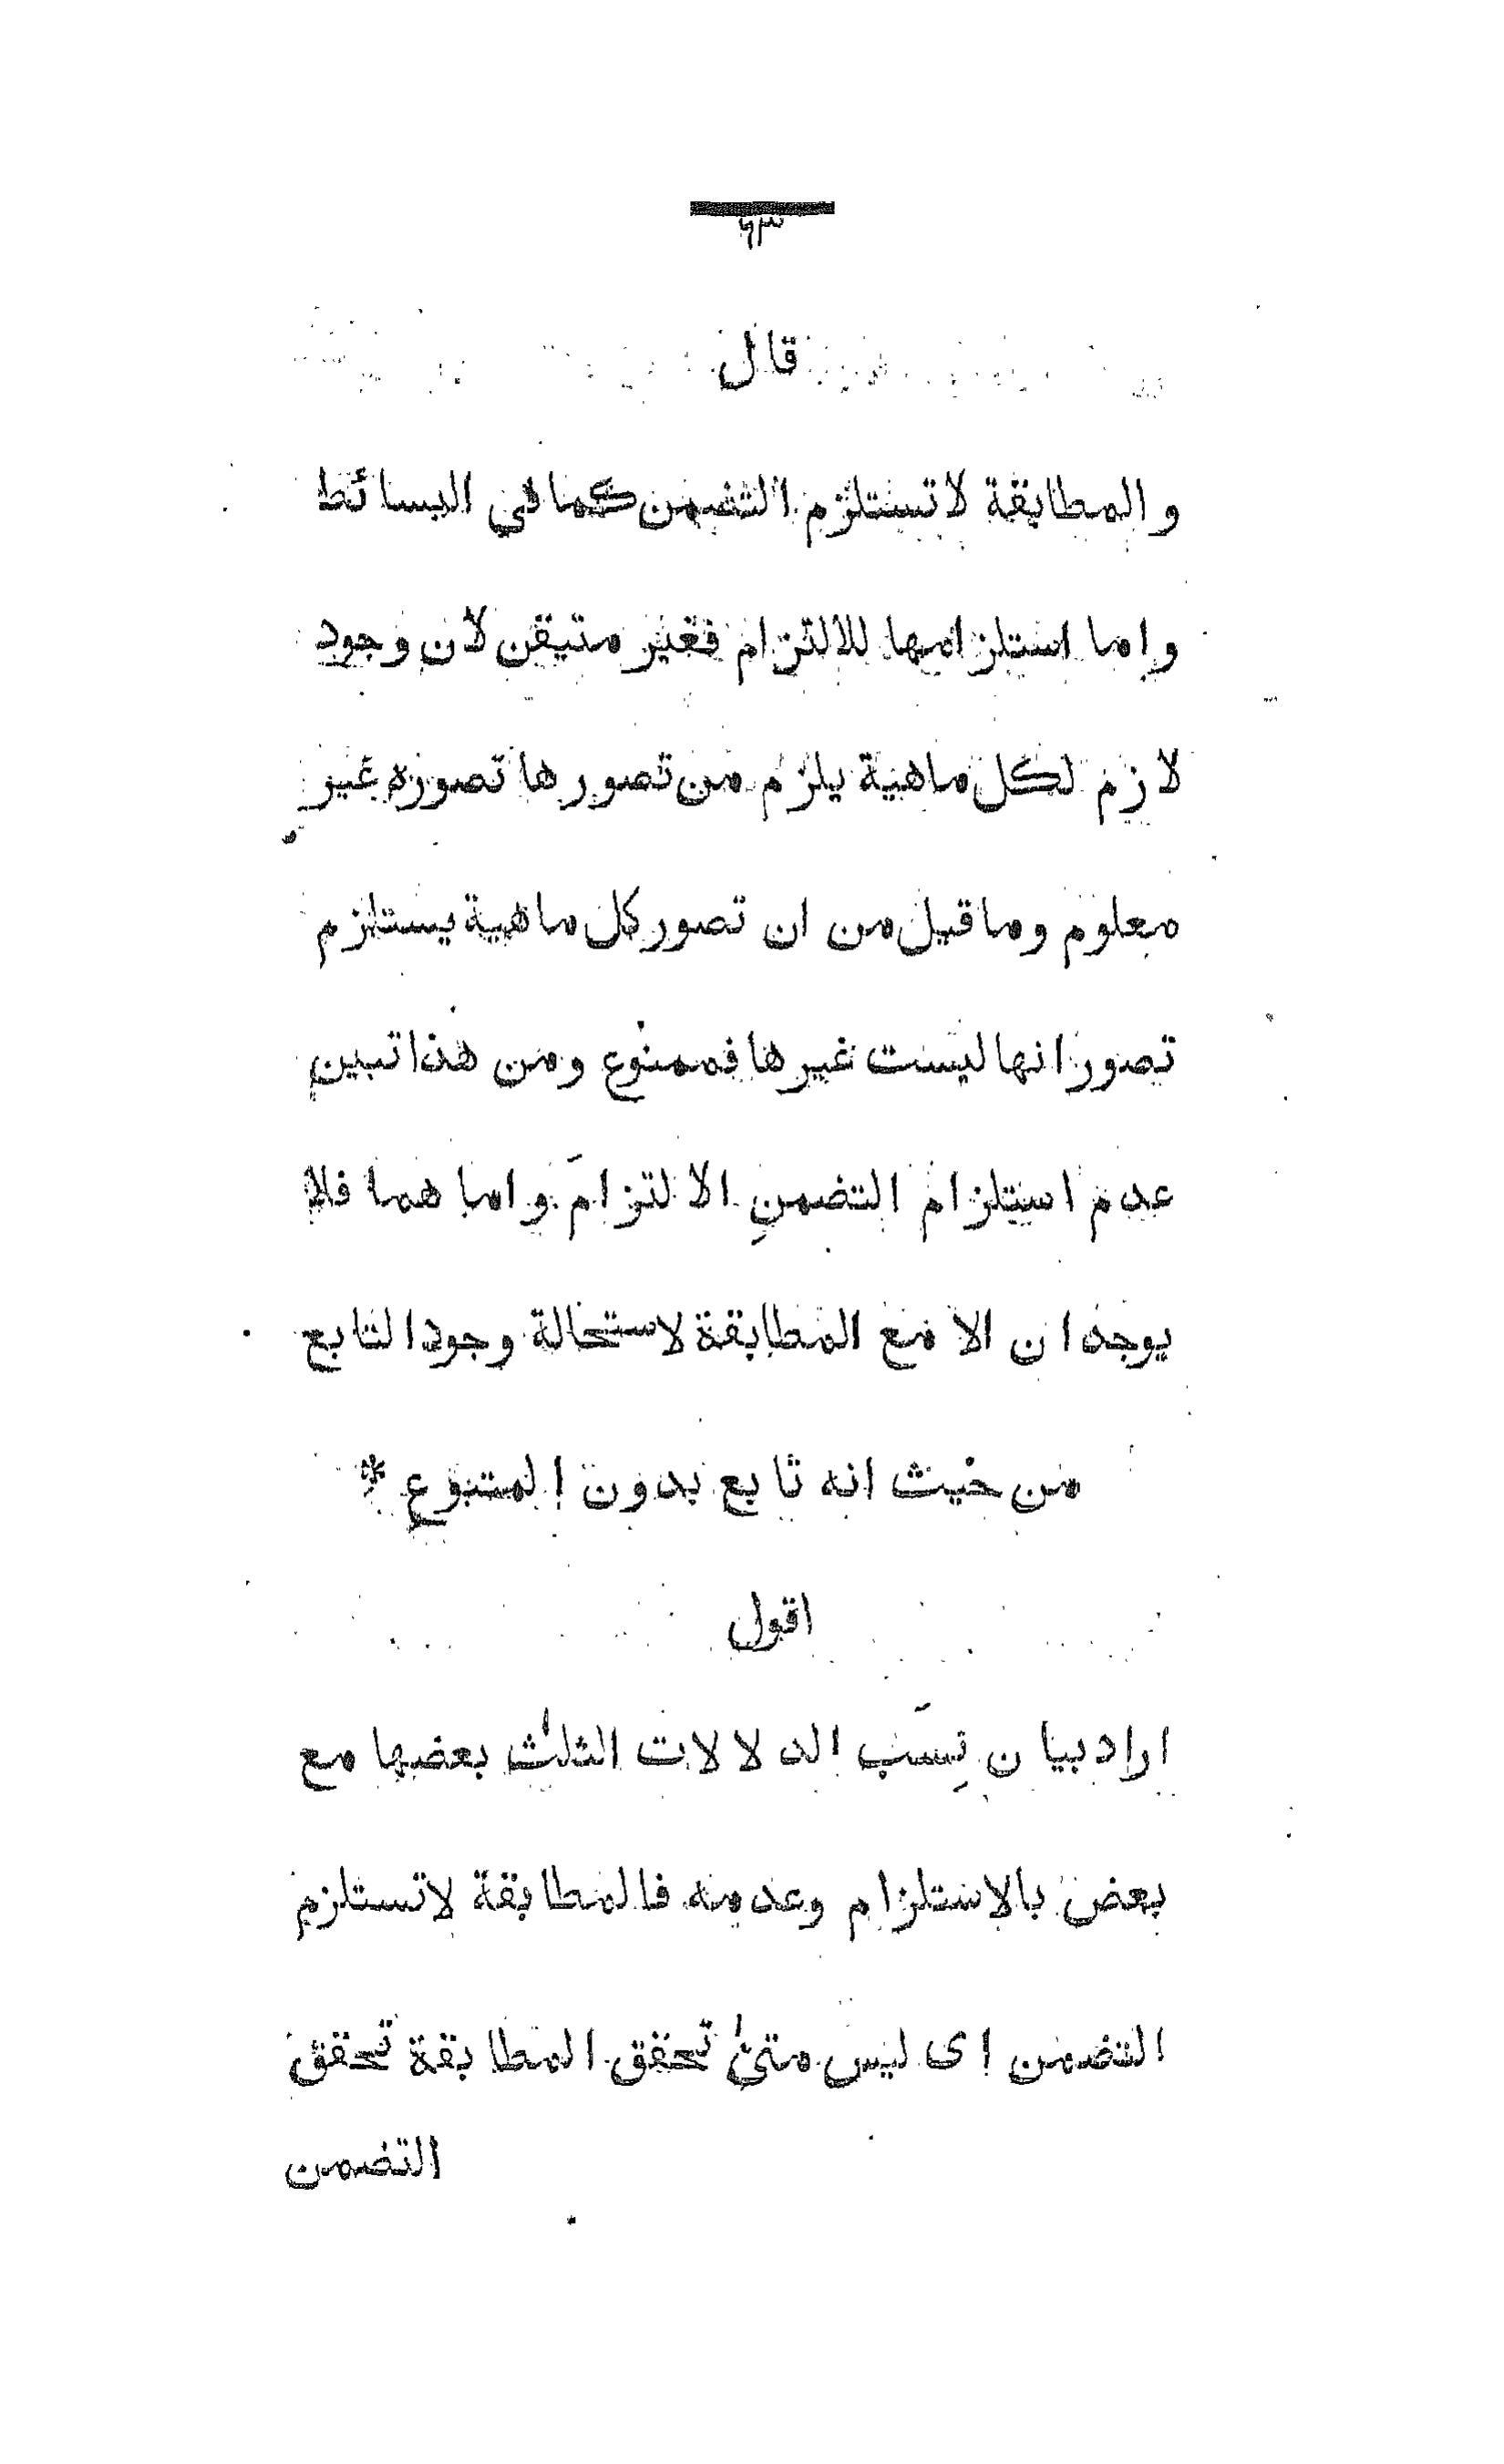 ٦٣
قال
والمطابقة لا تستلزم التضمن كما في البسائط
واما استلزامها للالتزام فغير متيقن لان وجود
لازم لكل ماهية يلزم من تصورها تصوره غير
معلوم وما قيل من ان تصور كل ماهية يستلزم
تصور انها ليست غيرها فممنوع ومن هذا تبين
عدم استلزام التضمنِ الالتزامَ واما هما فلا
يوجدان الا مع المطابقة لاستحالة وجود التابع
من حيث انه تابع بدون المتبوع *
اقول
اراد بيان نِسَب الدلالات الثلٰث بعضها مع
بعض بالاستلزام وعدمه فالمطابقة لا تستلزم
التضمن اى ليس متىٰ تحقق المطابقة تحقق
التضمن